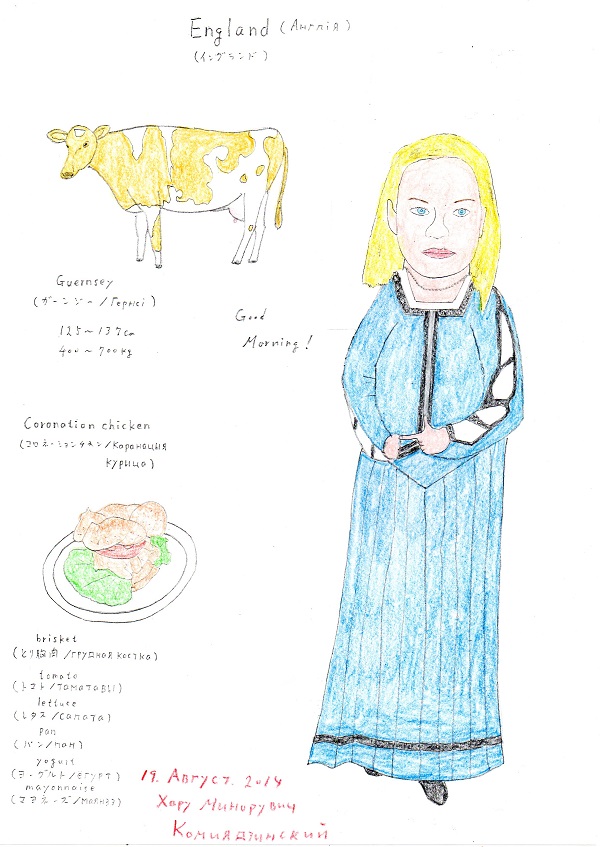 England (Англія)
(イングランド)
Guernsey
(ガーンジー/Гернсі)
125～137cm
400～700kg
Good
Morning!
Coronation chicken
(コロネーションチキン/Каранацыя
курица)
brisket
(とり胸肉/грудная костка)
tomato
(トマト/таматавы)
lettuce
(レタス/салата)
pan
(パン/пан)
yogurt
(ヨーグルト/егурт)
mayonnaise
(マヨネーズ/маянэз)
19. Август. 2014
Хару Минорувич
Комиядзинский